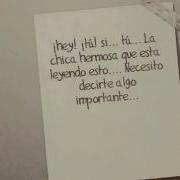 ¡hey! ¡tú! si... tú... La
chica hermosa que esta
leyendo esto.... Necesito
decirte algo
importante...